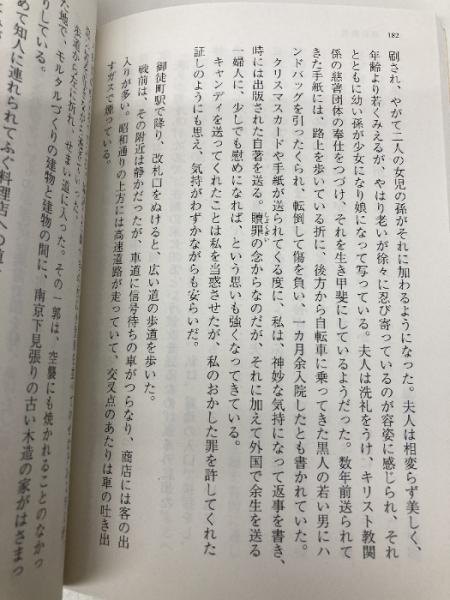 182
刷され、やがて二人の女児の孫がそれに加わるようになった。夫人は相変らず美しく、
年齢より若くみえるが、やはり老いが徐々に忍び寄っているのが容姿に感じられ、それ
とともに幼い孫が少女になり娘になって写っている。夫人は洗礼をうけ、キリスト教関
係の慈善団体の奉仕をつづけ、それを生き甲斐にしているようだった。数年前送られて
きた手紙には、路上を歩いている折に、後方から自転車に乗ってきた黒人の若い男にハ
ンドバッグを引ったくられ、転倒して傷を負い、一カ月余入院したとも書かれていた。
クリスマスカードや手紙が送られてくる度に、私は、神妙な気持になって返事を書き、
時には出版された自著を送る。贖罪の念からなのだが、それに加えて外国で余生を送る
一婦人に、少しでも慰めになれば、という思いも強くなってきている。
キャンディを送ってくれたことは私を当惑させたが、私のおかした罪を許してくれた
証しのようにも思え、気持がわずかながらも安らいだ。
御徒町駅で降り、改札口をぬけると、広い道の歩道を歩いた。
戦前は、その附近は静かだったが、車道に信号待ちの車がつらなり、商店には客の出
入りが多い。昭和通りの上方には高速道路が走っていて、交叉点のあたりは車の吐き出
すガスで煙っている。
せまい道に入った。その一郭は、空襲にも焼かれることのなかっ
た地で、モルタルづくりの建物と建物の間に、南京下見張りの古い木造の家がはさまっ
りしている。
めて知人に連れられてふぐ料理店への道